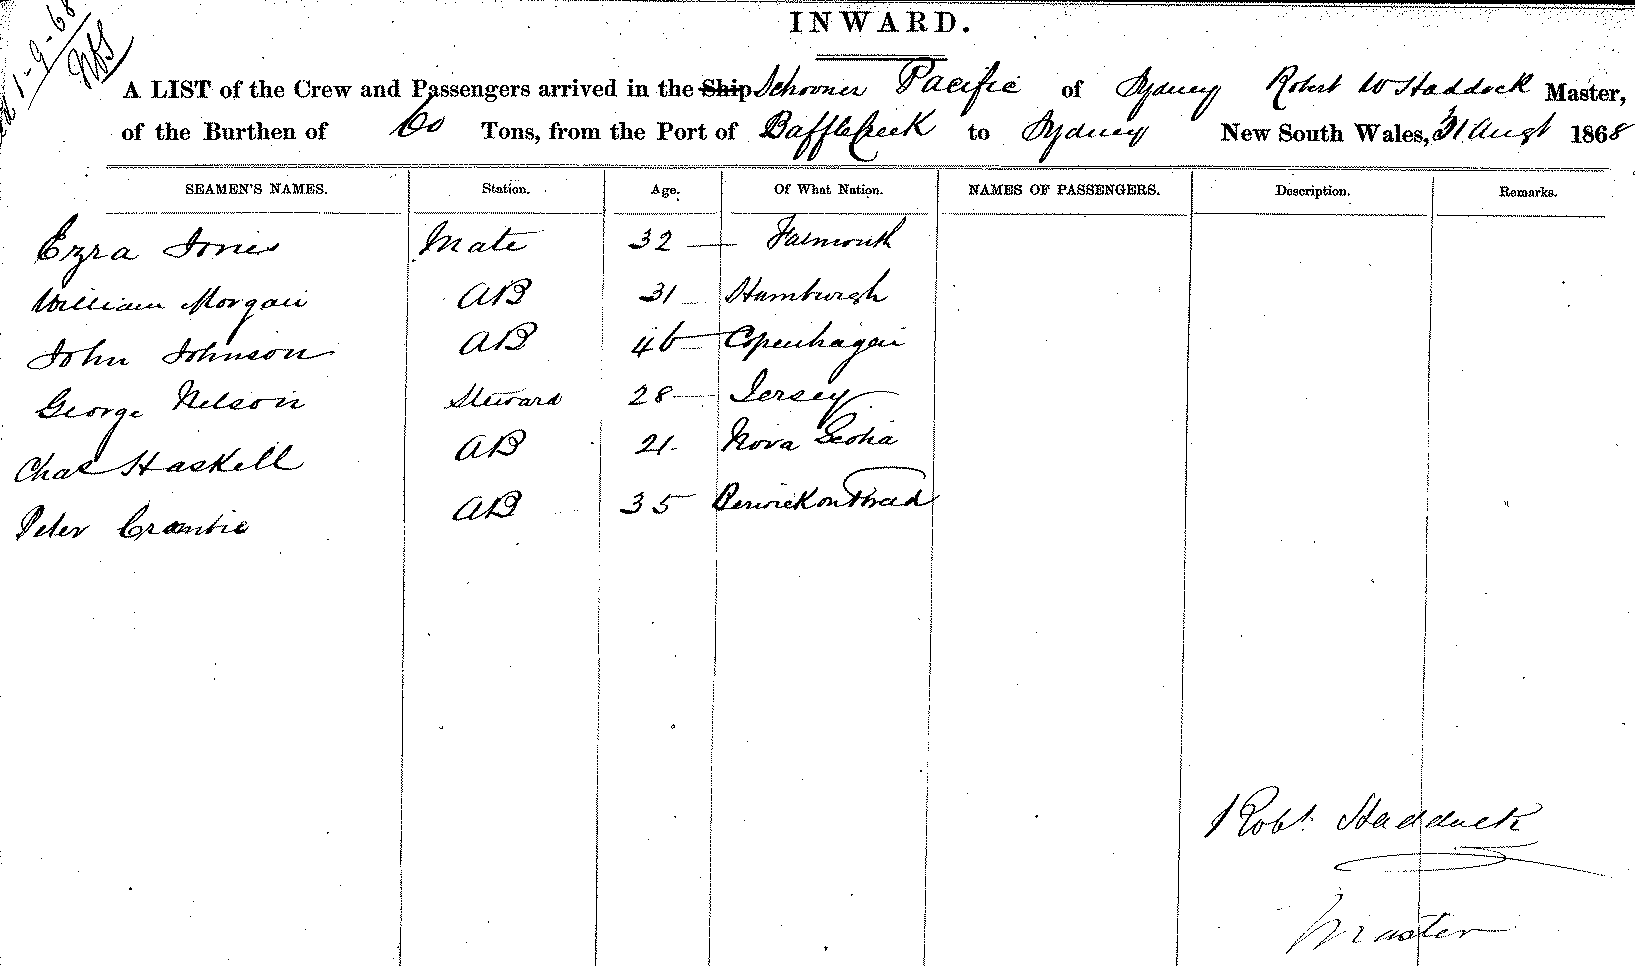 1-9-68
INWARD.
A LIST of the Crew and Passengers arrived in the Ship Schooner Pacific of Sydney Robert W Haddock Master,
of the Burthen of 60 Tons, from the Port of Baffle Creek to Sydney New South Wales, 31 Augt 1868
SEAMEN'S NAMES. Station. Age. Of What Nation. NAMES OF PASSENGERS. Description. Remarks.
Ezra Jones Mate 32 — Falmouth
William Morgan AB 31 — Hamburgh
John Johnson AB 46 — Copenhagen
George Nelson Steward 28 — Jersey
Chas Haskell AB 21 - Nova Scotia
Peter Crambie AB 35 Berwick on Tweed
Robt. Haddock
Master